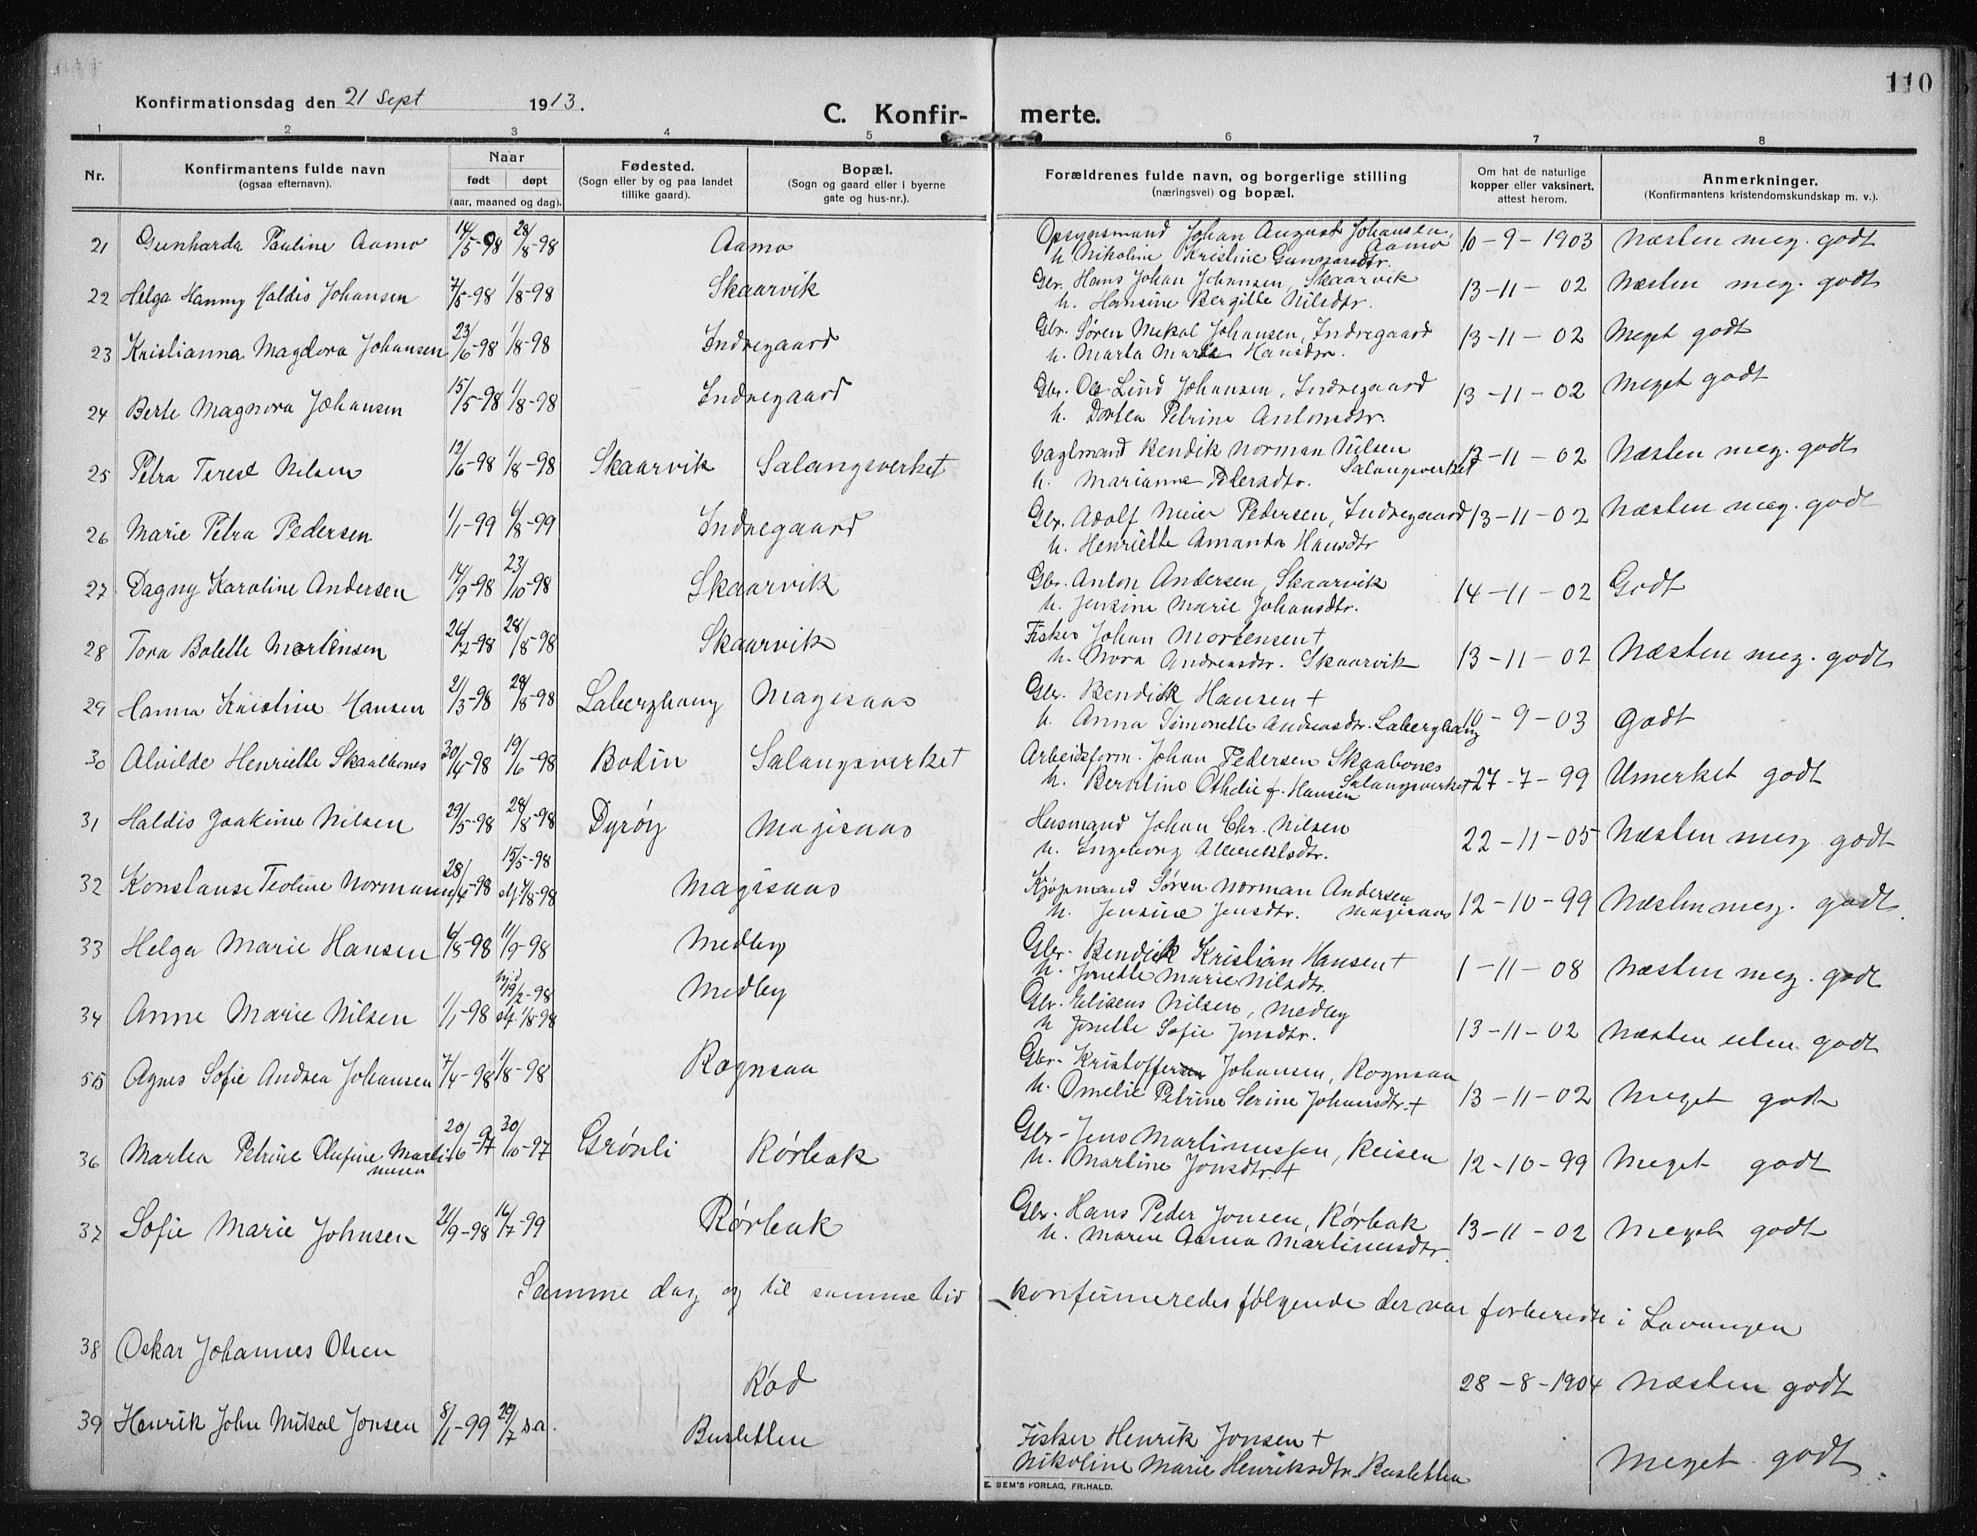 110
Konfirmationsdag den 21 Sept 1913.
C. Konfir- merte.
1 2 3 4 5 6 7 8
Nr. Konfirmantens fulde navn (ogsaa efternavn). Naar født døpt (aar, maaned og dag). Fødested. (Sogn eller by og paa landet tillike gaard). Bopæl. (Sogn og gaard eller i byerne gate og hus-nr.). Forældrenes fulde navn, og borgerlige stilling (næringsvei) og bopæl. Om hat de naturlige kopper eller vaksinert, attest herom. Anmerkninger. (Konfirmantens kristendomskundskap m. v.).
21 Gunharda Pauline Aamo 14/5-98 28/8-98 Aamo Opsynsmand Johan August Johansen, Aamo 10-9-1903 Næsten meg. godt
h. Nikoline Kristine Gunnarsdtr.
22 Helga Hanny Haldis Johansen 7/5-98 1/8-98 Skaarvik Gbr. Hans Johan Johansen, Skaarvik 13-11-02 Næsten meg. godt
h. Hansine Bergitte Nilsdtr.
23 Kristianna Magdora Johansen 23/6-98 1/8-98 Indregaard Gbr. Søren Mikal Johansen, Indregaard 13-11-02 Meget godt
h. Marta Hansdtr.
24 Berte Magnora Johansen 15/5-98 1/8-98 Indregaard Gbr. Ole Lind Johansen, Indregaard 13-11-02 Meget godt
h. Dortea Petrine Antonsdtr.
25 Petra Terest Nilsen 12/6-98 1/8-98 Skaarvik Salangsverket Vagtmand Bendik Norman Nilsen Salangsverket 13-11-02 Næsten meg. godt
h. Marianne Pedersdtr.
26 Marie Petra Pedersen 1/1-99 6/8-99 Indregaard Gbr. Adolf Meier Pedersen, Indregaard 13-11-02 Næsten meg. godt
h. Henriette Amanda Hansdtr
27 Dagny Karoline Andersen 14/9-98 23/10-98 Skaarvik Gbr. Anton Andersen, Skaarvik 14-11-02 Godt
h. Jensine Marie Johansdtr.
28 Tora Bolette Mortensen 26/2-98 28/8-98 Skaarvik Fisker Johan Mortensen + 13-11-02 Næsten meg. godt
h. Nora Andreasdtr. Skaarvik
29 Hanna Kristine Hansen 21/3-98 28/8-98 Laberghaug Magisaas Gbr. Bendick Hansen + 10-9-03 Godt
h. Anna Simonette Andreasdtr. Laberghaug
30 Alvilde Henriette Skaalbones 30/4-98 19/6-98 Bodin Salangsverket Arbeidsform. Johan Pedersen Skaabones 27-7-99 Umerket godt
h. Othelie f. Hansen Salangsverket
31 Haldis Joakime Nilsen 29/5-98 28/8-98 Dyrøy Magisaas Husmand Johan Chr. Nilsen 22-11-05 Næsten meg. godt
h. Ingeborg
32 Konstanse Teoline Normann 28/4-98 15/5-98 Magisaas Kjøpmand Søren Norman Andersen 12-10-99 Næsten meg. godt
h. Jensine Jensdtr. Magisaas
33 Helga Marie Hansen 6/8-98 11/9-98 Medby Gbr. Bendick Kristian Hansen + 1-11-08 Næsten meg. godt
h. Jonette Marie Nilsdtr.
34 Anne Marie Nilsen 1/1-98 hjd 19/2-98 stf. 1/8-98 Medby Gbr. Eliseus Nilsen, Medby 13-11-02 Næsten uten godt
h Jonette Sofie Jonsdtr.
35 Agnes Sofie Andrea Johansen 7/4-98 1/8-98 Rognsaa Gbr. Kristoffer Johansen, Rognsaa 13-11-02 Meget godt
h. Omelie Petrine Serine Johansdtr. +
36 Martea Petrine Olufine Martinusen 20/6-97 30/10-97 Grønli Rørbak Gbr. Jens Martinussen, Reisen 12-10-99 Meget godt
h. Martine Jonsdtr. +
37 Sofie Marie Johnsen 21/9-98 16/7-99 Rørbak Gbr. Hans Peder Jonsen, Rørbak 13-11-02 Meget godt
h. Maren Anna Martinusdtr.
Samme dag og til samme tid konfirmeredes følgende der var forberedte i Lavangen
38 Oskar Johannes Olsen Rød 28-8-1904 Næsten godt
39 Henrik John Mikal Jonsen 8/1-99 29/7 s.a. Busletten Fisker Henrik Jonsen + Meget godt.
Nikoline Marie Henriksdtr. Busletten
E. SEM'S FORLAG, FR.HALD.